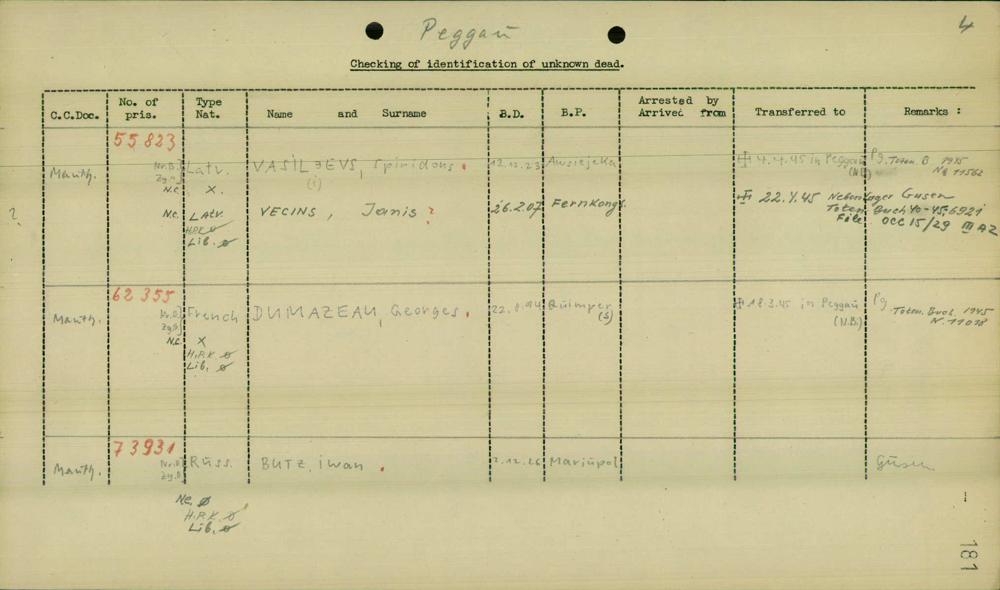 Peggaŭ
4
Checking of identification of unknown dead.
C.C.Doc. No. of pris. Type Nat. Name and Surname B.D. B.P. Arrested by Arrived from Transferred to Remarks :
55 823
Mauth. Nr.B. Zg.B. Latv. VASILJEVS, Spiridons. 12.12.23 ✠ 4.4.45 in Peggaŭ (N.B.) Pg. Toten B 1945 Nr 11562
N.C. X. (i)
? N.C. Latv. VECINS, Janis ? 26.2.07 Fernkongs ✠ 22.4.45 Nebenlager Gusen
H.P.K ø Toten Buch 40-45, 6921
Lib. ø File OCC 15/29 III AZ
62 355
Mauth. Nr.B. Zg.B. French DUMAZEAU, Georges. 22.8.94 Quimper (S) ✠ 18.3.45 in Peggaŭ (N.B.) Pg. Toten. Buch. 1945 N. 11018
N.C. X
H.P.K. ø
Lib. ø
73931
Mauth. Nr.B. Zg.B. Rŭss. BUTZ, iwan. 2.12.26 Mariŭpol Gŭsen
N.C. ø
H.P.K. ø
Lib. ø
181